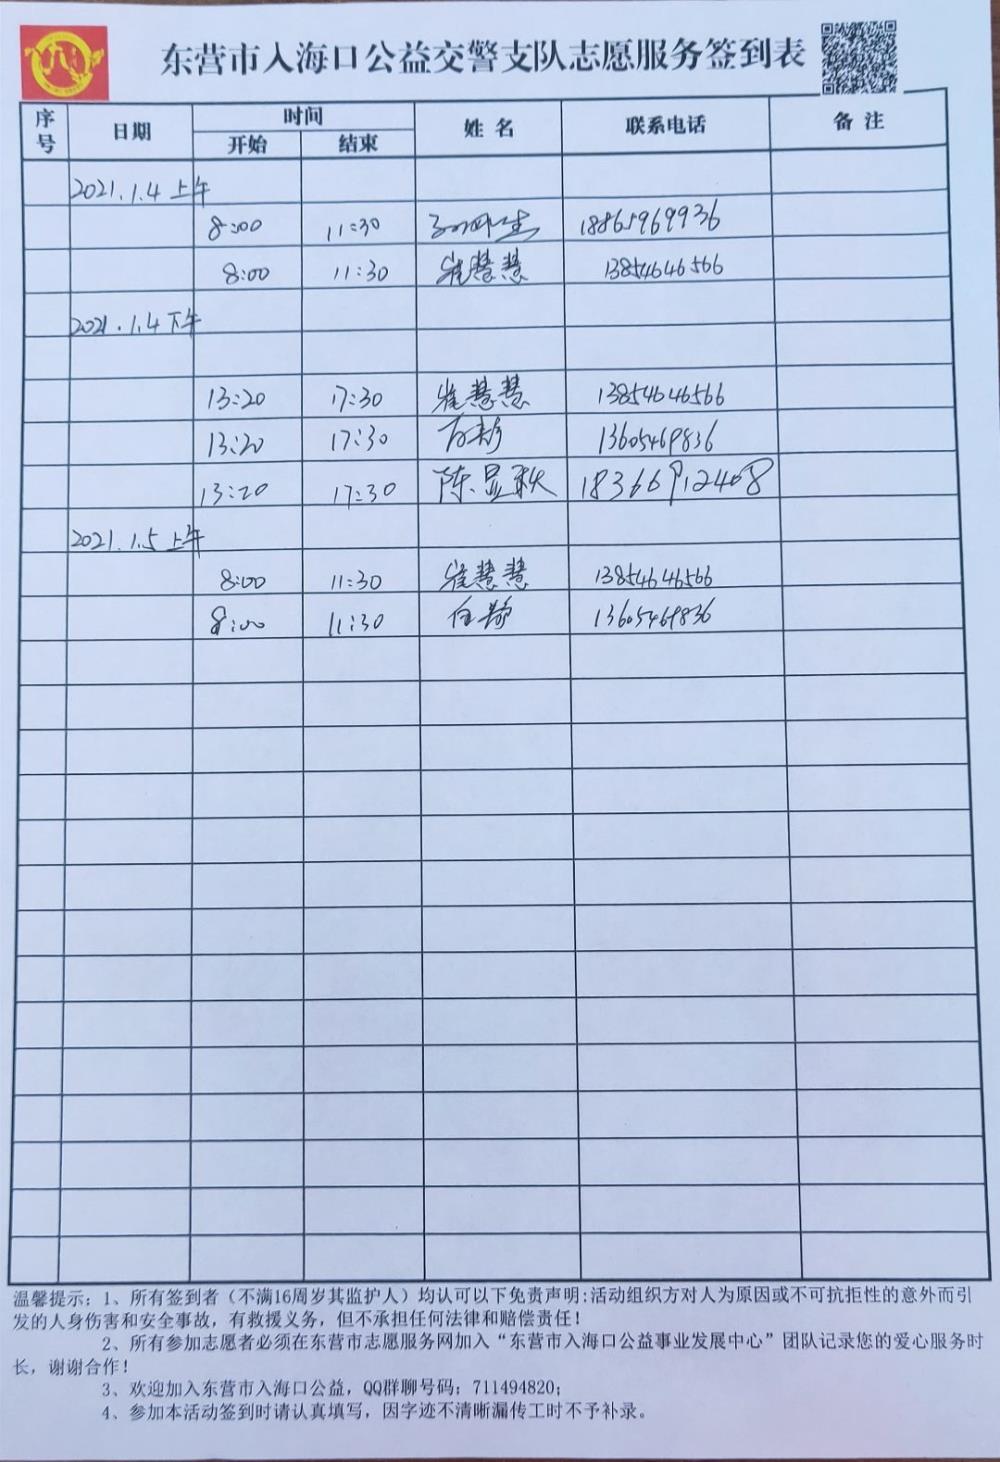 东营市入海口公益交警支队志愿服务签到表
序号 日期 时间 开始 结束 姓名 联系电话 备注
2021.1.4 上午
8:00 11:30 18865969936
8:00 11:30 崔慧慧 13854646566
2021.1.4 下午
13:20 17:30 崔慧慧 13854646566
13:20 17:30 13605469836
13:20 17:30 陈显秋 18366912408
2021.1.5 上午
8:00 11:30 崔慧慧 13854646566
8:00 11:30 13605469836
温馨提示：1、所有签到者（不满16周岁其监护人）均认可以下免责声明:活动组织方对人为原因或不可抗拒性的意外而引
发的人身伤害和安全事故，有救援义务，但不承担任何法律和赔偿责任！
2、所有参加志愿者必须在东营市志愿服务网加入“东营市入海口公益事业发展中心”团队记录您的爱心服务时
长，谢谢合作！
3、欢迎加入东营市入海口公益，QQ群聊号码：711494820；
4、参加本活动签到时请认真填写，因字迹不清晰漏传工时不予补录。